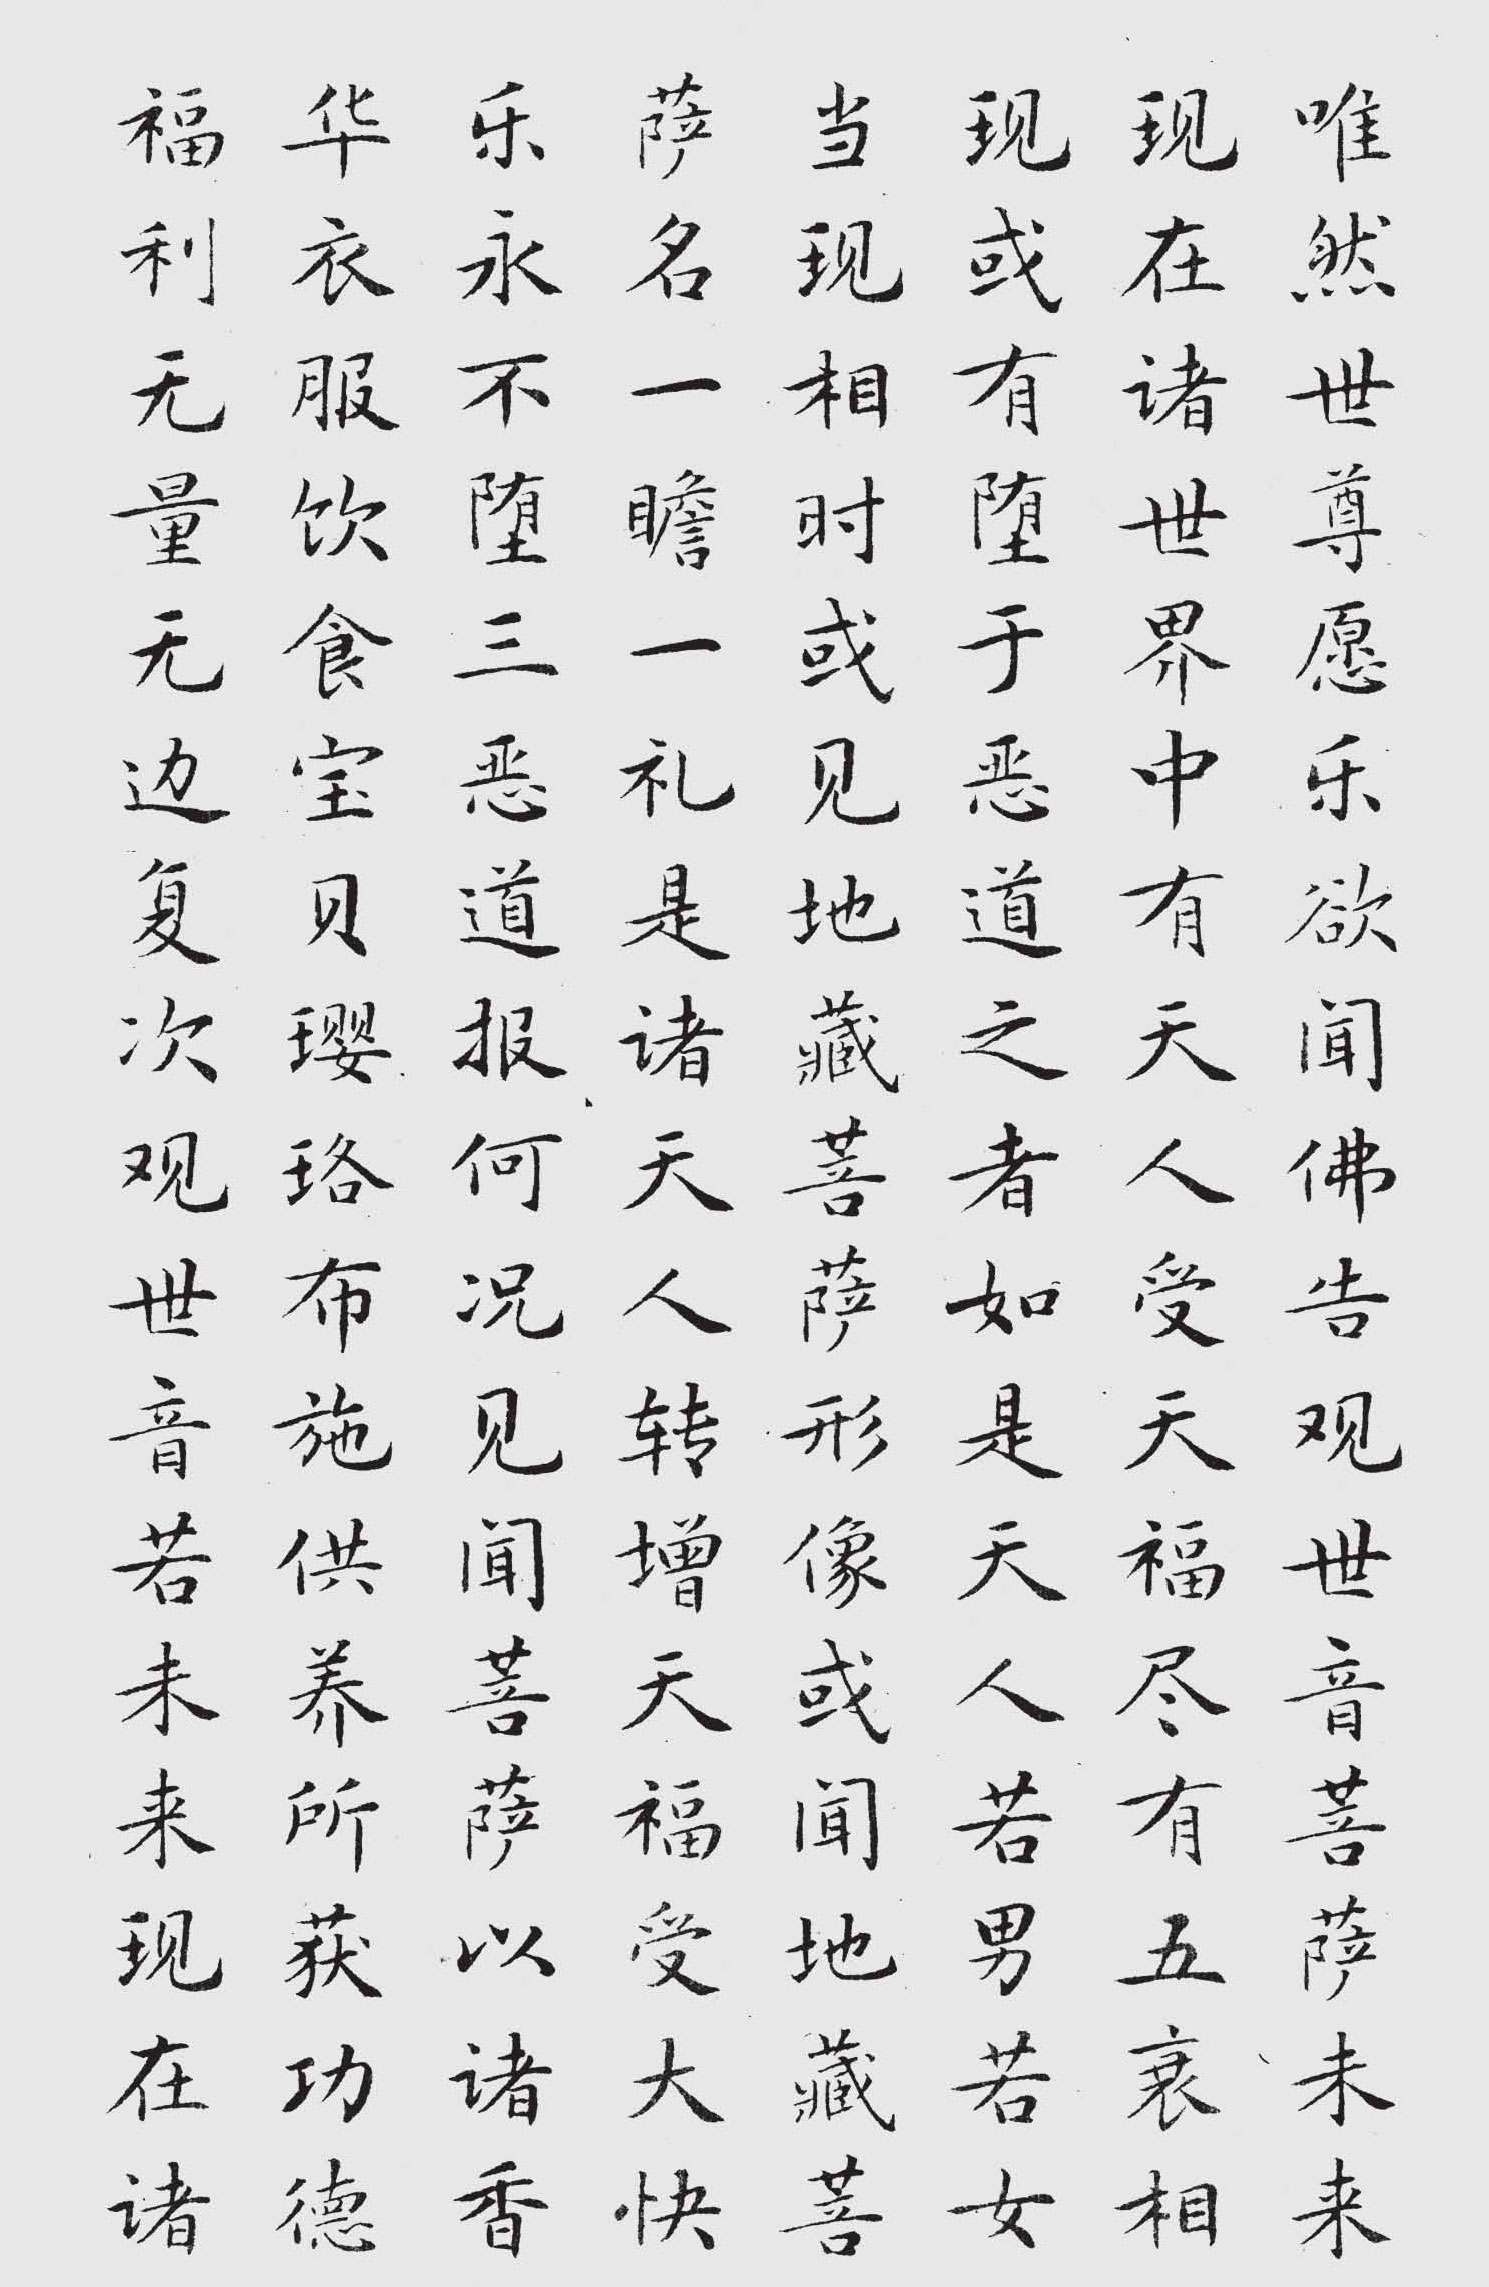 唯然世尊愿乐欲闻佛告观世音菩萨未来
现在诸世界中有天人受天福尽有五衰相
现或有堕于恶道之者如是天人若男若女
当现相时或见地藏菩萨形像或闻地藏菩
萨名一瞻一礼是诸天人转增天福受大快
乐永不堕三恶道报何况见闻菩萨以诸香
华衣服饮食宝贝璎珞布施供养所获功德
福利无量无边复次观世音若未来现在诸